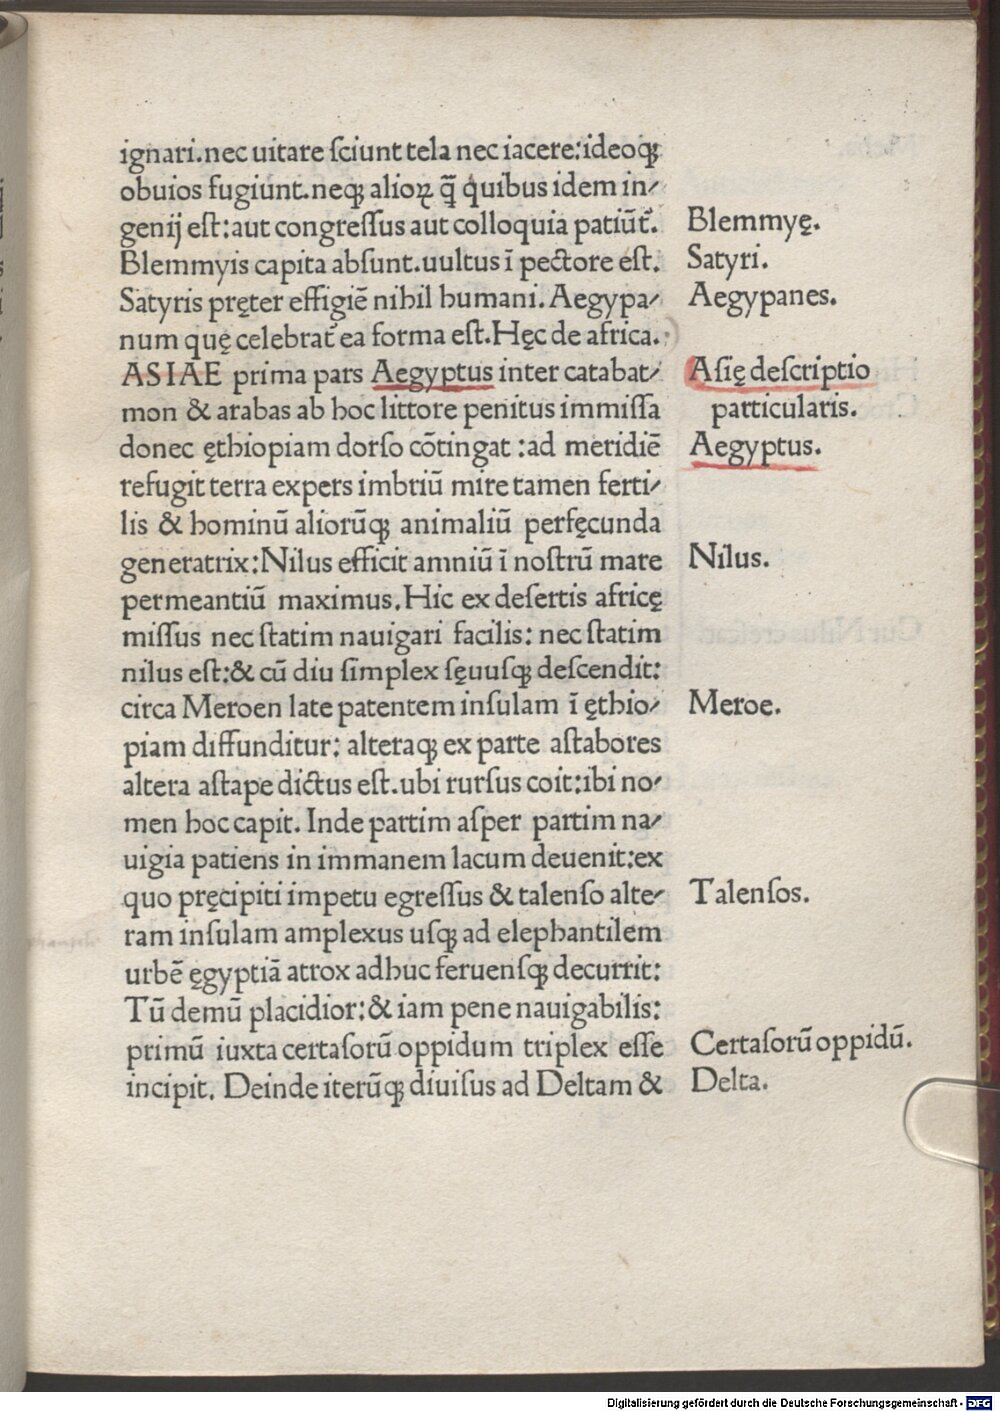 ignari.nec uitare ſciunt tela nec iacere:ideoqꝫ
obuios fugiunt.neqꝫ alioꝝ q̄ꝫ quibus idem in⸗
genij eſt:aut congreſſus aut colloquia patiūt᷑.
Blemmyis capita abſunt.uultus ī pectore eſt.
Satyris pręter effigiē nihil humani.Aegypa⸗
num quę celebrat᷑ ea forma eſt.Hęc de africa.
ASIAE prima pars Aegyptus inter catabat⸗
mon & arabas ab hoc littore penitus immiſſa
donec ęthiopiam dorſo cōtingat :ad meridiē
refugit terra expers imbriū mire tamen ferti⸗
lis & hominū aliorūqꝫ animaliū perfęcunda
generatrix:Nilus efficit amniū ī noſtrū mare
permeantiū maximus.Hic ex deſertis africę
miſſus nec ſtatim nauigari facilis: nec ſtatim
nilus eſt:& cū diu ſimplex ſęuuſqꝫ deſcendit:
circa Meroen late patentem inſulam ī ęthio⸗
piam diffunditur: alteraqꝫ ex parte aſtabores
altera aſtape dictus eſt.ubi rurſus coit:ibi no⸗
men hoc capit. Inde partim aſper partim na⸗
uigia patiens in immanem lacum deuenit:ex
quo pręcipiti impetu egreſſus & talenſo alte⸗
ram inſulam amplexus uſqꝫ ad elephantilem
urbē ęgyptiā atrox adhuc feruenſqꝫ decurrit:
Tū demū placidior:& iam pene nauigabilis:
primū iuxta certaſorū oppidum triplex eſſe
incipit. Deinde iterūqꝫ diuiſus ad Deltam &
Blemmyę.
Satyri.
Aegypanes.
Aſię deſcriptio
particularis.
Aegyptus.
Nilus.
Meroe.
Talenſos.
Certaſorū oppidū.
Delta.
Digitalisierung gefördert durch die Deutsche Forschungsgemeinschaft - DFG